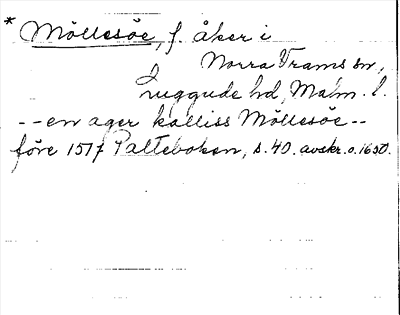 * Möllesöe, f. åker i
Norra Vrams sn,
Luggude hd, Malm. l.
--en ager kalliss Möllesöe--
före 1517 Palteboken, s. 40. avskr. o. 1650.